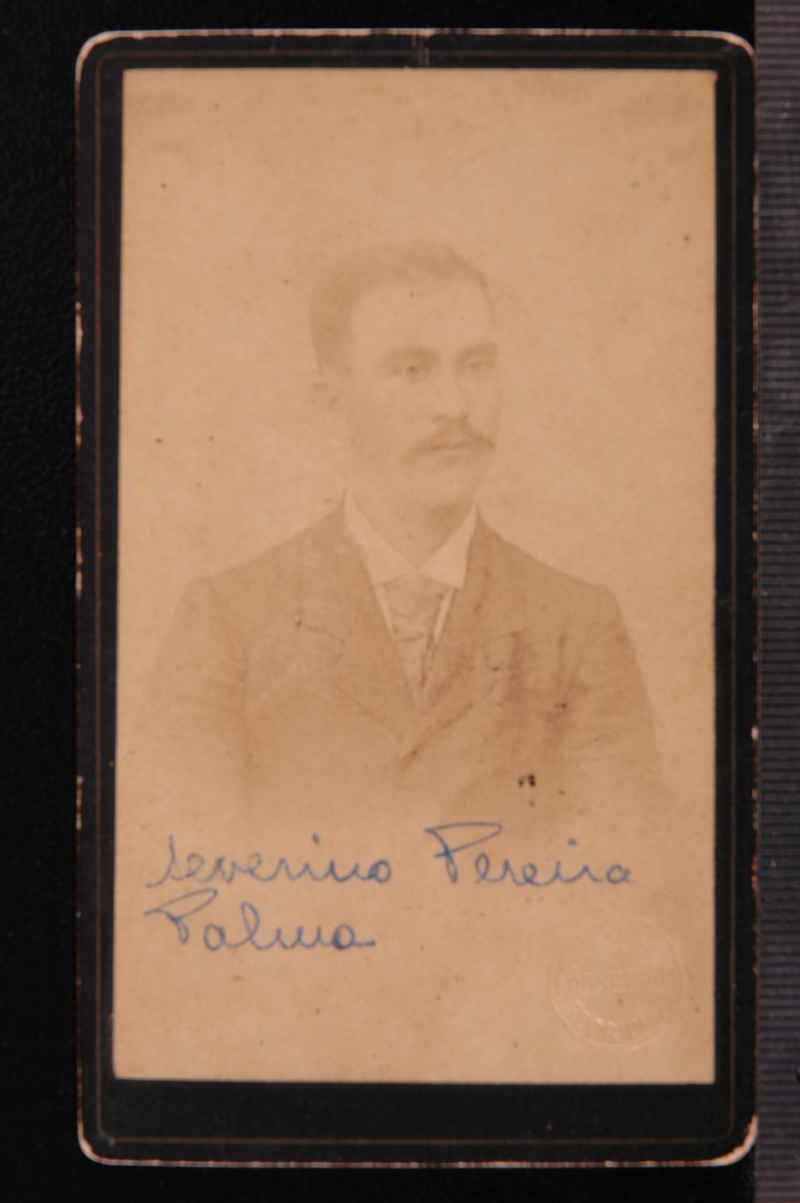 Severino Pereira
Palma